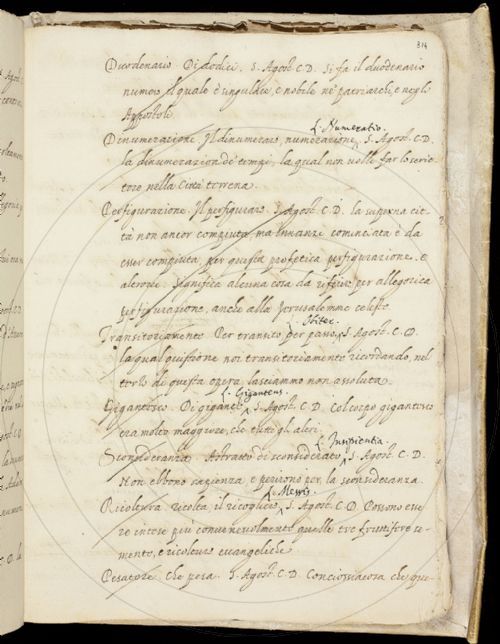 314
Duodenario Di dodici. S. Agost. C. D. Si fa il duodenario
numero il quale è singulare, e nobile ne patriarchi, e negli
Appostoli.
L. Numeratio.
Dinumerazione. Il dinumerare, numerazione. S. Agost. C. D.
la dinumerazion de tempi, la qual non volle far lo scrit-
tore nella Città terrena.
Perfigurazione. Il perfigurare. S. Agost. C. D. la superna cit-
tà non ancor compiuta, ma innanzi cominciata è da
esser compiuta, per questa profetica perfigurazione, e
altrove. Significa alcuna cosa da riferire per allegorica
perfigurazione, anche alla Jerusalemme celeste
L. Obiter.
Transitoriamente Per transito, per passo. S. Agost. C. D.
la qual quistione noi transitoriamente ricordando, nel
terzo di questa opera lasciammo non assoluta.
L. Giganteus.
Gigantesco. Di gigante. S. Agost. C. D. Col corpo gigantesco
era molto maggiore, che tutti gl altri.
L. Insipientia.
Sconsideranza. Astratto di sconsiderato. S. Agost. C. D.
Non ebbono sapienza e perirono per la sconsideranza.
L. Messis.
Ricoltura ricolta il ricogliere. S. Agost. C. D. Possono esse
re intese più convenevolmente quelle tre fruttifere se-
mento, e ricolture evangeliche
Pesatore Che pesa. S. Agost. C. D. Conciossiacosa che que-